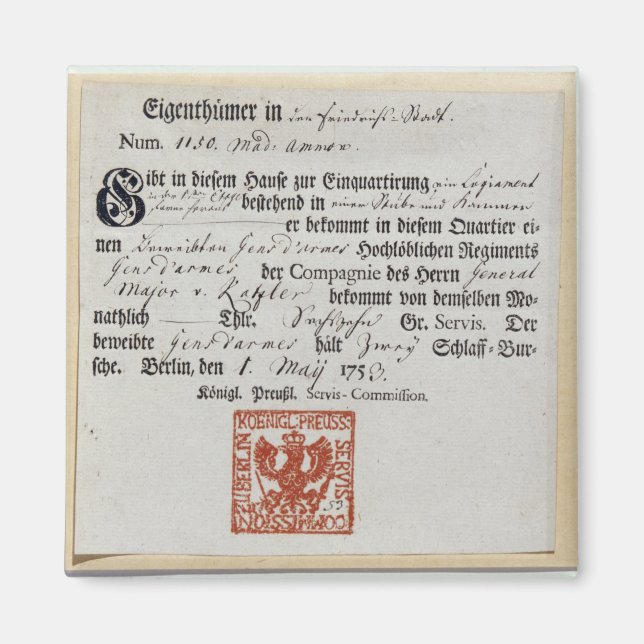 Eigenthümer in den Friedrichs-Stadt.
Num. 1150. Mad: Ammon.
Gibt in diesem Hause zur Einquartirung, ein Logiament
in der
bestehend in einer Stube und Kammer
er bekommt in diesem Quartier ei-
nen Beweibten Gens d'armes Hochlöblichen Regiments
Gens d'armes der Compagnie des Herrn General
Major v. Katzler bekommt von demselben Mo-
nathlich — Thlr. Sechszehn Gr. Servis. Der
beweibte Gens d'armes hält Zwey Schlaff-Bur-
sche. Berlin, den 1. Maÿ 1753.
Königl. Preußl. Servis-Commißion.
KOENIGL: PREUSS:
SERVIS
COMMISSION
ZU BERLIN
53